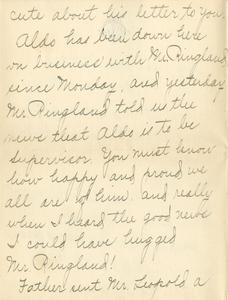 cute about his letter to you.
Aldo has been down here
on business with Mr. Ringland
since Monday, and yesterday
Mr. Ringland told us the
news that Aldo is to be
Supervisor. You must know
how happy and proud we
all are of him, and really
when I heard the good news
I could have hugged
Mr. Ringland!
Father sent Mr. Leopold a